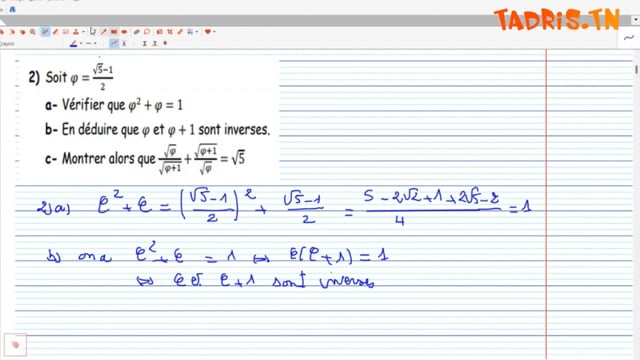 TADRIS.TN
2) Soit φ = (√5−1)/2
a- Vérifier que φ² + φ = 1
b- En déduire que φ et φ + 1 sont inverses.
c- Montrer alors que √φ/√(φ+1) + √(φ+1)/√φ = √5
2) a) φ² + φ = ((√5 − 1)/2)² + (√5 − 1)/2 = (5 − 2√2 + 1 + 2√5 − 2)/4 = 1
b) on a φ² + φ = 1 ⇔ φ(φ + 1) = 1
⇔ φ et φ + 1 sont inverses